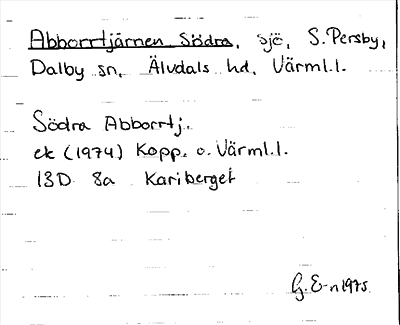 Abborrtjärnen Södra, sjö, S. Persby,
Dalby sn, Älvdals hd, Värml.l.
Södra Abborrtj.
ek (1974) Kopp. o. Värml.l.
13D 8a Kariberget
G. E-n 1975